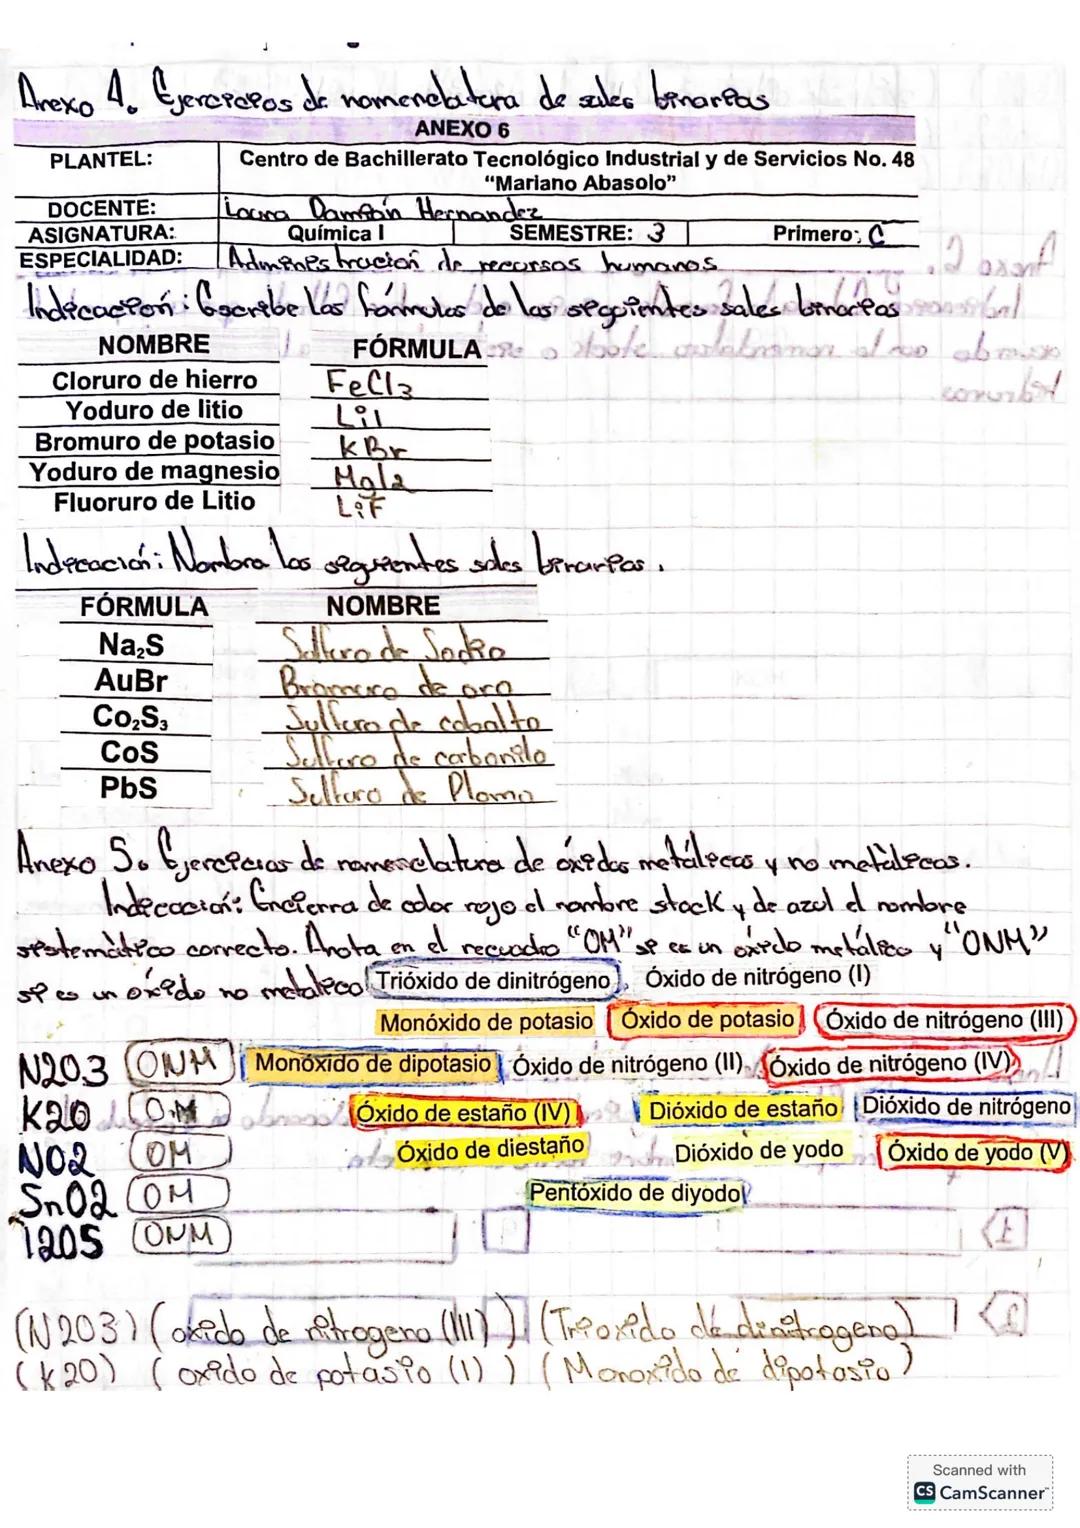 Anexo 4. Ejercicios de nomenclatura de sales binarias
ANEXO 6
PLANTEL: Centro de Bachillerato Tecnológico Industrial y de Servicios No. 48
"Mariano Abasolo"
DOCENTE: Laura Damián Hernandez
ASIGNATURA: Química I SEMESTRE: 3 Primero: C
ESPECIALIDAD: Administración de recursos humanos
Indicación: Escribe las fórmulas de las siguientes sales binarias
NOMBRE FÓRMULA
Cloruro de hierro FeCl3
Yoduro de litio LiI
Bromuro de potasio KBr
Yoduro de magnesio MgI2
Fluoruro de Litio LiF
Indicación: Nombra las siguientes sales binarias.
FÓRMULA NOMBRE
Na₂S Sulfuro de Sodio
AuBr Bromuro de oro
Co₂S₃ Sulfuro de cobalto
CoS Sulfuro de carbonilo
PbS Sulfuro de Plomo
Anexo 5. Ejercicios de nomenclatura de óxidos metálicos y no metálicos.
Indicación: Encierra de color rojo el nombre stock y de azul el nombre
sistemático correcto. Anota en el recuadro "OM" si es un óxido metálico y "ONM"
si es un óxido no metalico Trióxido de dinitrógeno Óxido de nitrógeno (I)
Monóxido de potasio Óxido de potasio Óxido de nitrógeno (III)
N2O3 ONM Monóxido de dipotasio Óxido de nitrógeno (II) Óxido de nitrógeno (IV)
K2O OM Óxido de estaño (IV) Dióxido de estaño Dióxido de nitrógeno
NO2 OM Óxido de diestaño Dióxido de yodo Óxido de yodo (V)
SnO2 OM Pentóxido de diyodo
I2O5 ONM
(N2O3) (oxido de nitrogeno (III)) (Trioxido de dinitrogeno)
(K2O) (oxido de potasio (I)) (Monoxido de dipotasio)
Scanned with
CS CamScanner